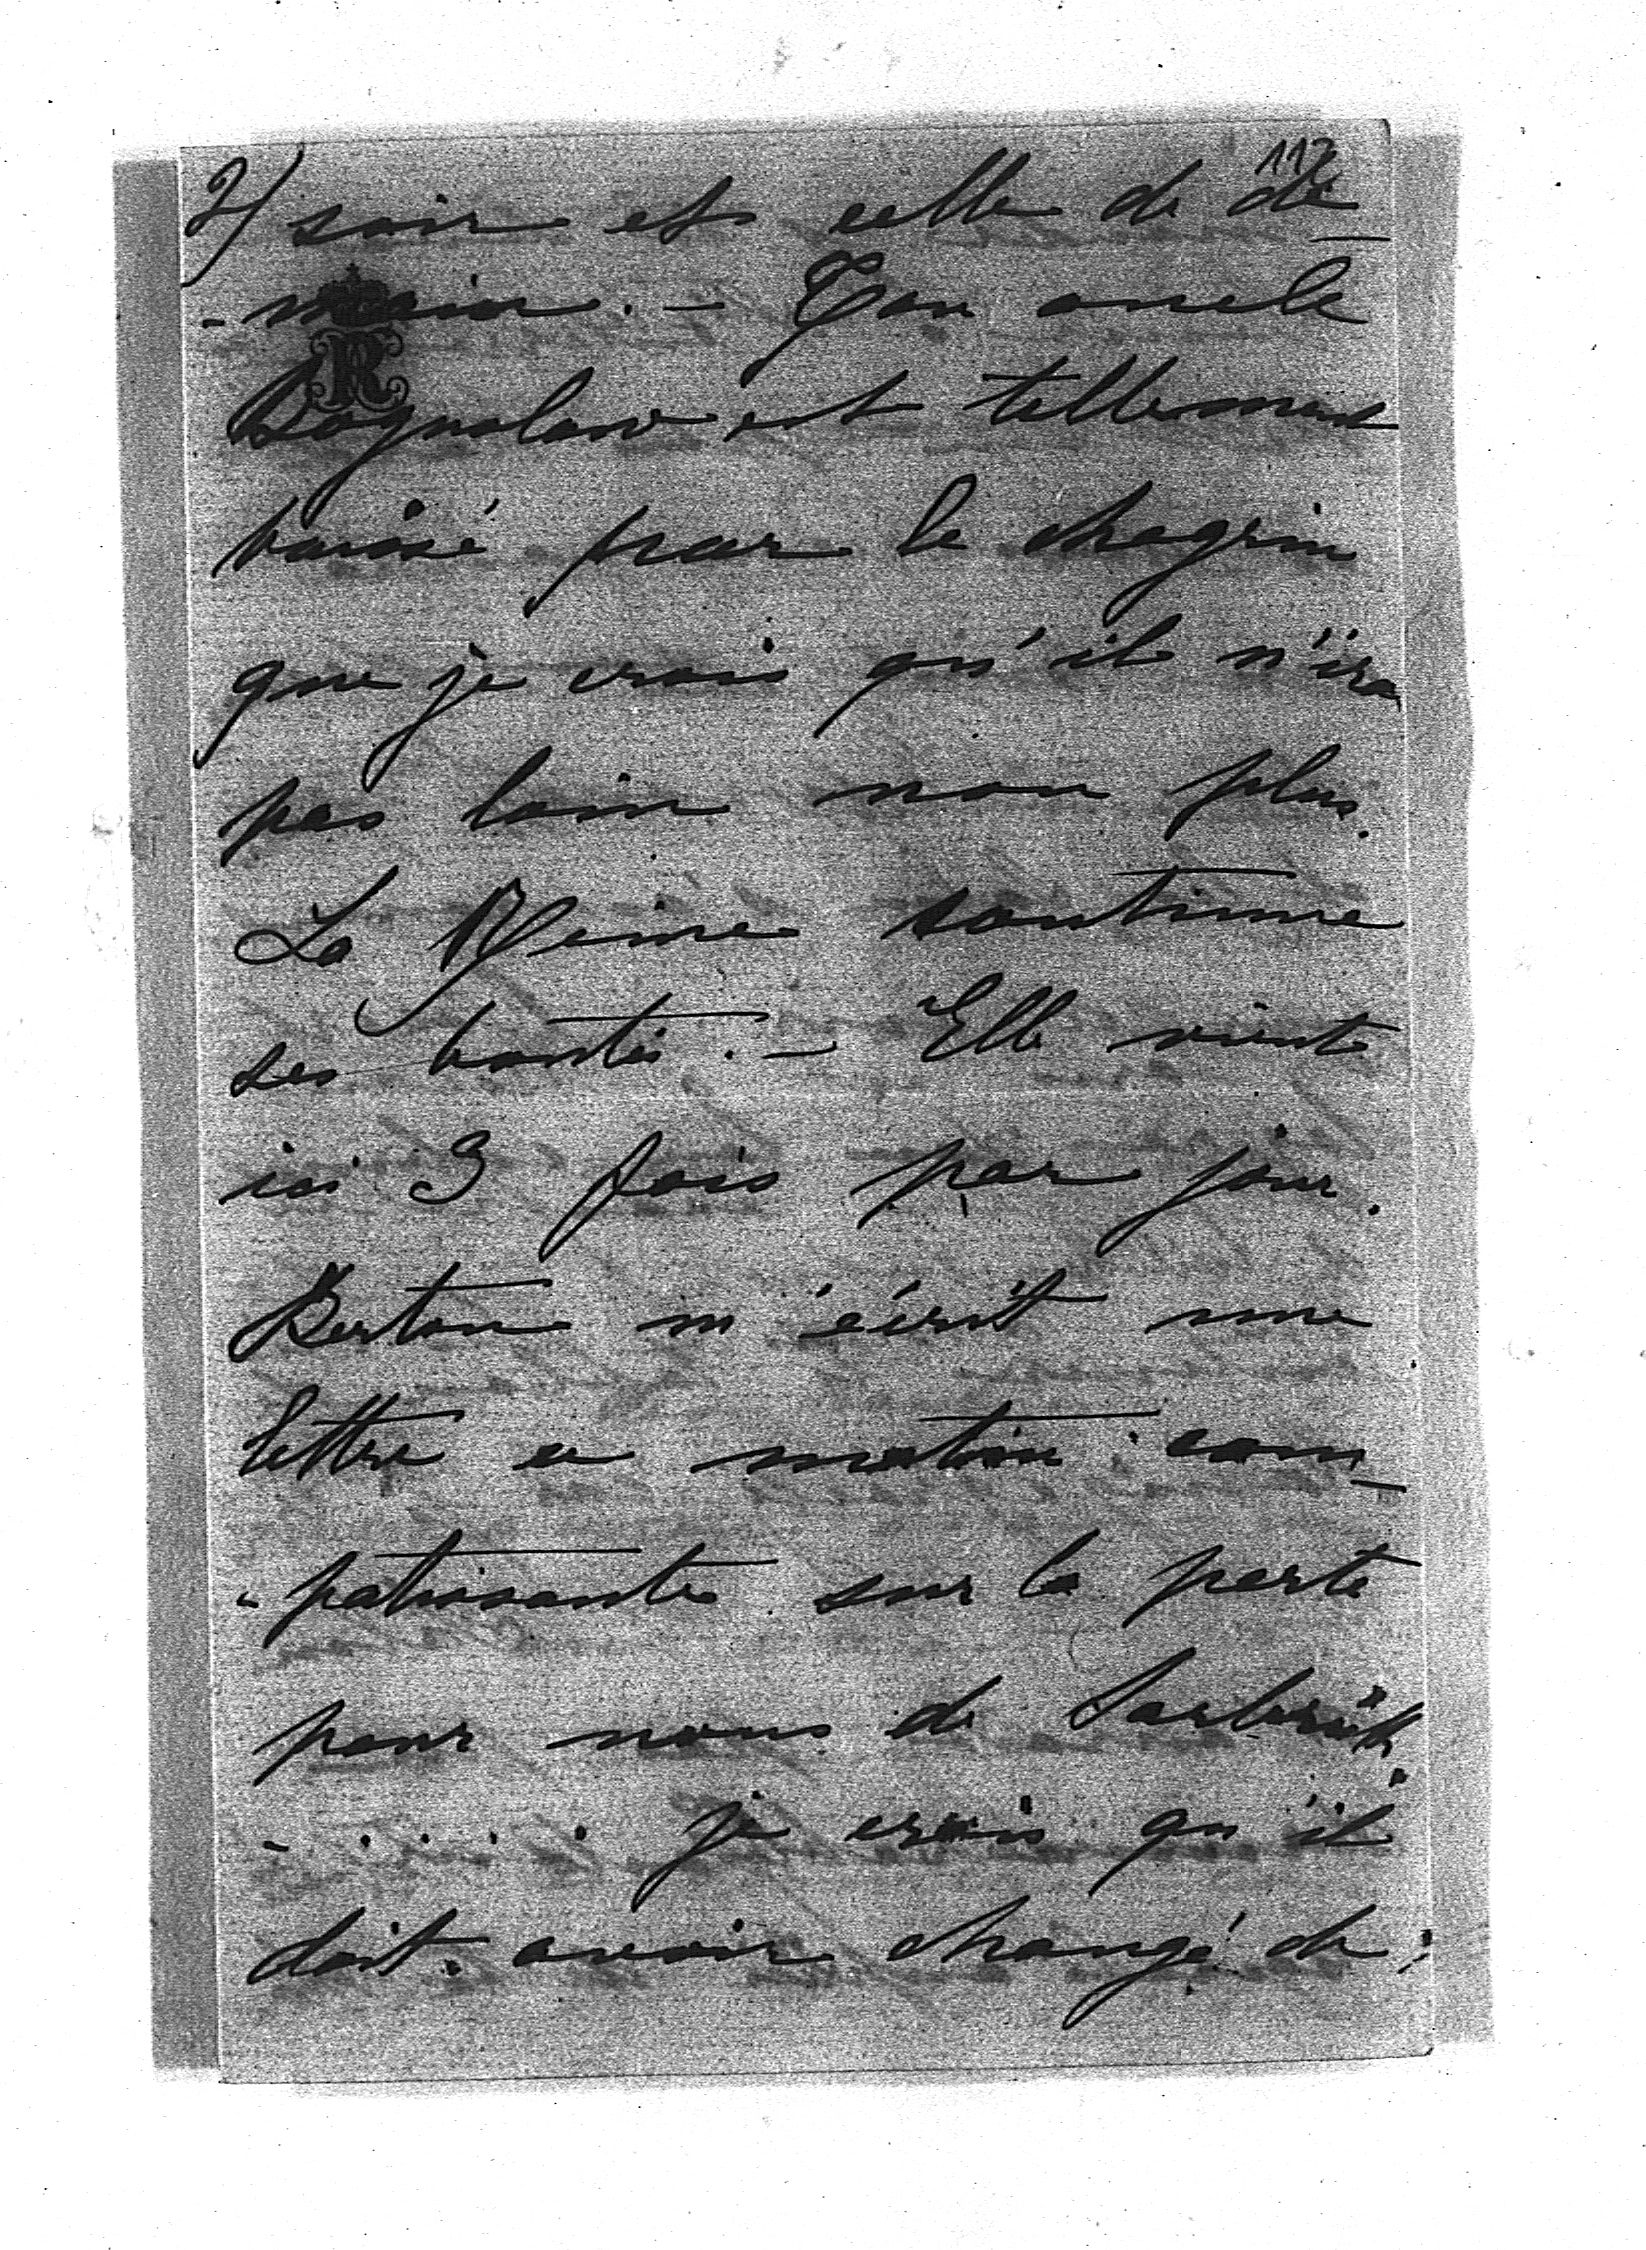 117
2/ soir et celle de de
-main. - Ton oncle
Boguslaw est tellement
baissé par le chagrin
que je crois qu'il n'ira
pas loin non plus.
La Reine continue
ses bontés. - Elle vient
ici 3 fois par jour.
Berton m'écrit une
lettre ce matin com-
-patissante sur la perte
pour nous de
- . . . . je crois qu'il
doit avoir changé de